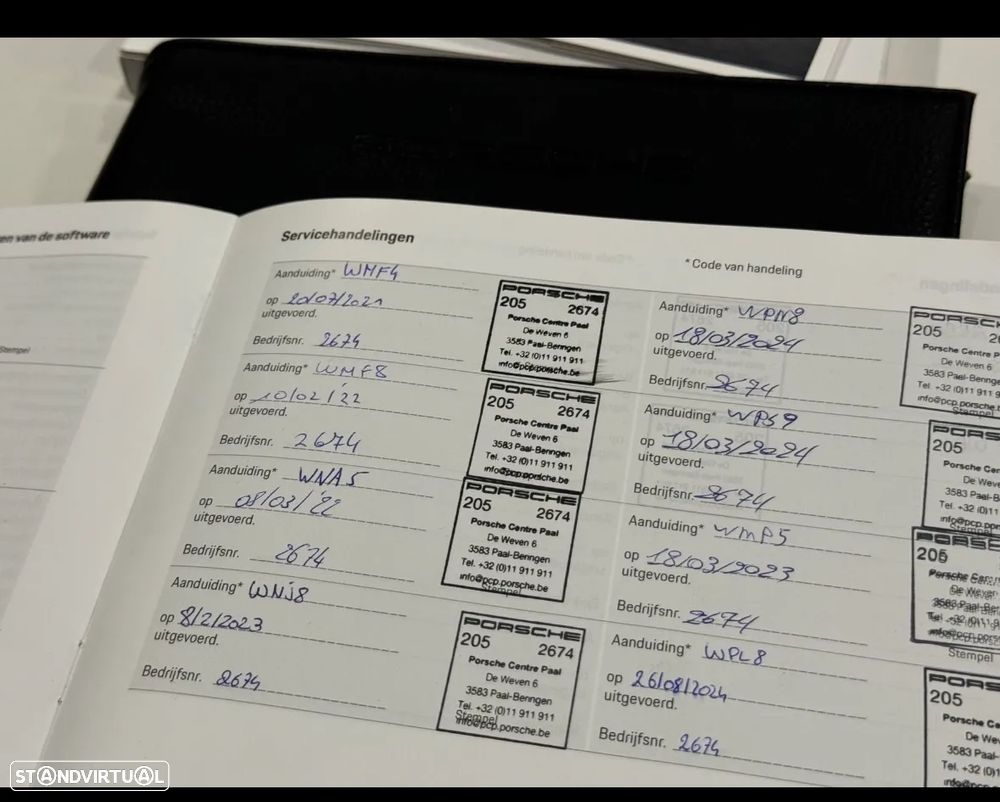 en van de software
Stempel
Servicehandelingen
* Code van handeling
Aanduiding* WMF4
op 20/07/2021
uitgevoerd.
Bedrijfsnr. 2674
PORSCHE
205 2674
Porsche Centre Paal
De Weven 6
3583 Paal-Beringen
Tel. +32 (0)11 911 911
info@pcp.porsche.be
Aanduiding* WMF8
op 10/02/'22
uitgevoerd.
Bedrijfsnr. 2674
PORSCHE
205 2674
Porsche Centre Paal
De Weven 6
3583 Paal-Beringen
Tel. +32 (0)11 911 911
info@pcp.porsche.be
Aanduiding* WNA5
op 08/03/'22
uitgevoerd.
Bedrijfsnr. 2674
PORSCHE
205 2674
Porsche Centre Paal
De Weven 6
3583 Paal-Beringen
Tel. +32 (0)11 911 911
info@pcp.porsche.be
Stempel
Aanduiding* WNJ8
op 8/2/2023
uitgevoerd.
Bedrijfsnr. 2674
PORSCHE
205 2674
Porsche Centre Paal
De Weven 6
3583 Paal-Beringen
Tel. +32 (0)11 911 911
Stempel
info@pcp.porsche.be
Aanduiding* WPN8
op 18/03/2024
uitgevoerd.
Bedrijfsnr. 2674
PORSCHE
205 2
Porsche Centre P
De Weven 6
3583 Paal-Bering
Tel. +32 (0)11 911
info@pcp.porsche.
Stempel
Aanduiding* WPS9
op 18/03/2024
uitgevoerd.
Bedrijfsnr. 2674
PORS
205
Porsche Ce
De Weve
3583 Paal-B
Tel. +32 (0)11
info@pcp.po
Stempel
Aanduiding* WMP5
op 18/03/2023
uitgevoerd.
Bedrijfsnr. 2674
PORS
205
Stempel
Aanduiding* WPL8
op 26/08/2024
uitgevoerd.
Bedrijfsnr. 2674
PORS
205
Porsche C
De We
3583 Paal-
Tel. +32 (0)1
info@pcp.p
STANDVIRTUAL